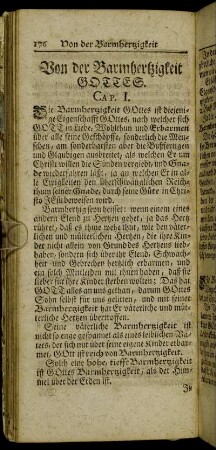 176 Von der Barmhertzigkeit
Von der Barmhertzigkeit
GOTTES.
CAP. I.
Die Barmhertzigkeit GOttes ist diejeni-
ge Eigenschafft GOttes, nach welcher sich
GOTT in Liebe, Wohlthun und Erbarmen
über alle seine Geschöpffe, sonderlich die Men-
schen, am sonderbarsten aber die Bußfertigen
und Glaubigen ausbreitet, als welchen Er um
Christi willen die Sünden vergiebt, und Gna-
de wiederfahren läßt, ja an welchen Er in al-
le Ewigkeiten den überschwänglichen Reich-
thum seiner Gnade, durch seine Güte in Christo
JEsu beweisen wird.
Barmhertzig seyn heisset: wenn einem eines
andern Elend zu Hertzen gehet, ja das Hertz
rühret, daß es ihm wehe thut, wie den väter-
lichen und mütterlichen Hertzen, die ihre Kin-
der nicht allein von Grund des Hertzens lieb
haben, sondern sich über ihr Elend, Schwach-
heit und Gebrechen hertzlich erbarmen, und
ein solch Mitleiden mit ihnen haben, daß sie
lieber für ihre Kinder sterben wolten: Das hat
GOTT alles an uns gethan, darum GOttes
Sohn selbst für uns gelitten, und mit seiner
Barmhertzigkeit hat Er väterliche und müt-
terliche Hertzen übertroffen.
Seine väterliche Barmhertzigkeit ist
nicht so enge gespannet als eines leiblichen Va-
ters, der sich nur über seine eigene Kinder erbar-
met, GOtt ist reich von Barmhertzigkeit.
Solch eine hohe, tieffe Barmhertzigkeit
ist GOttes Barmhertzigkeit, als der Him-
mel über der Erden ist.